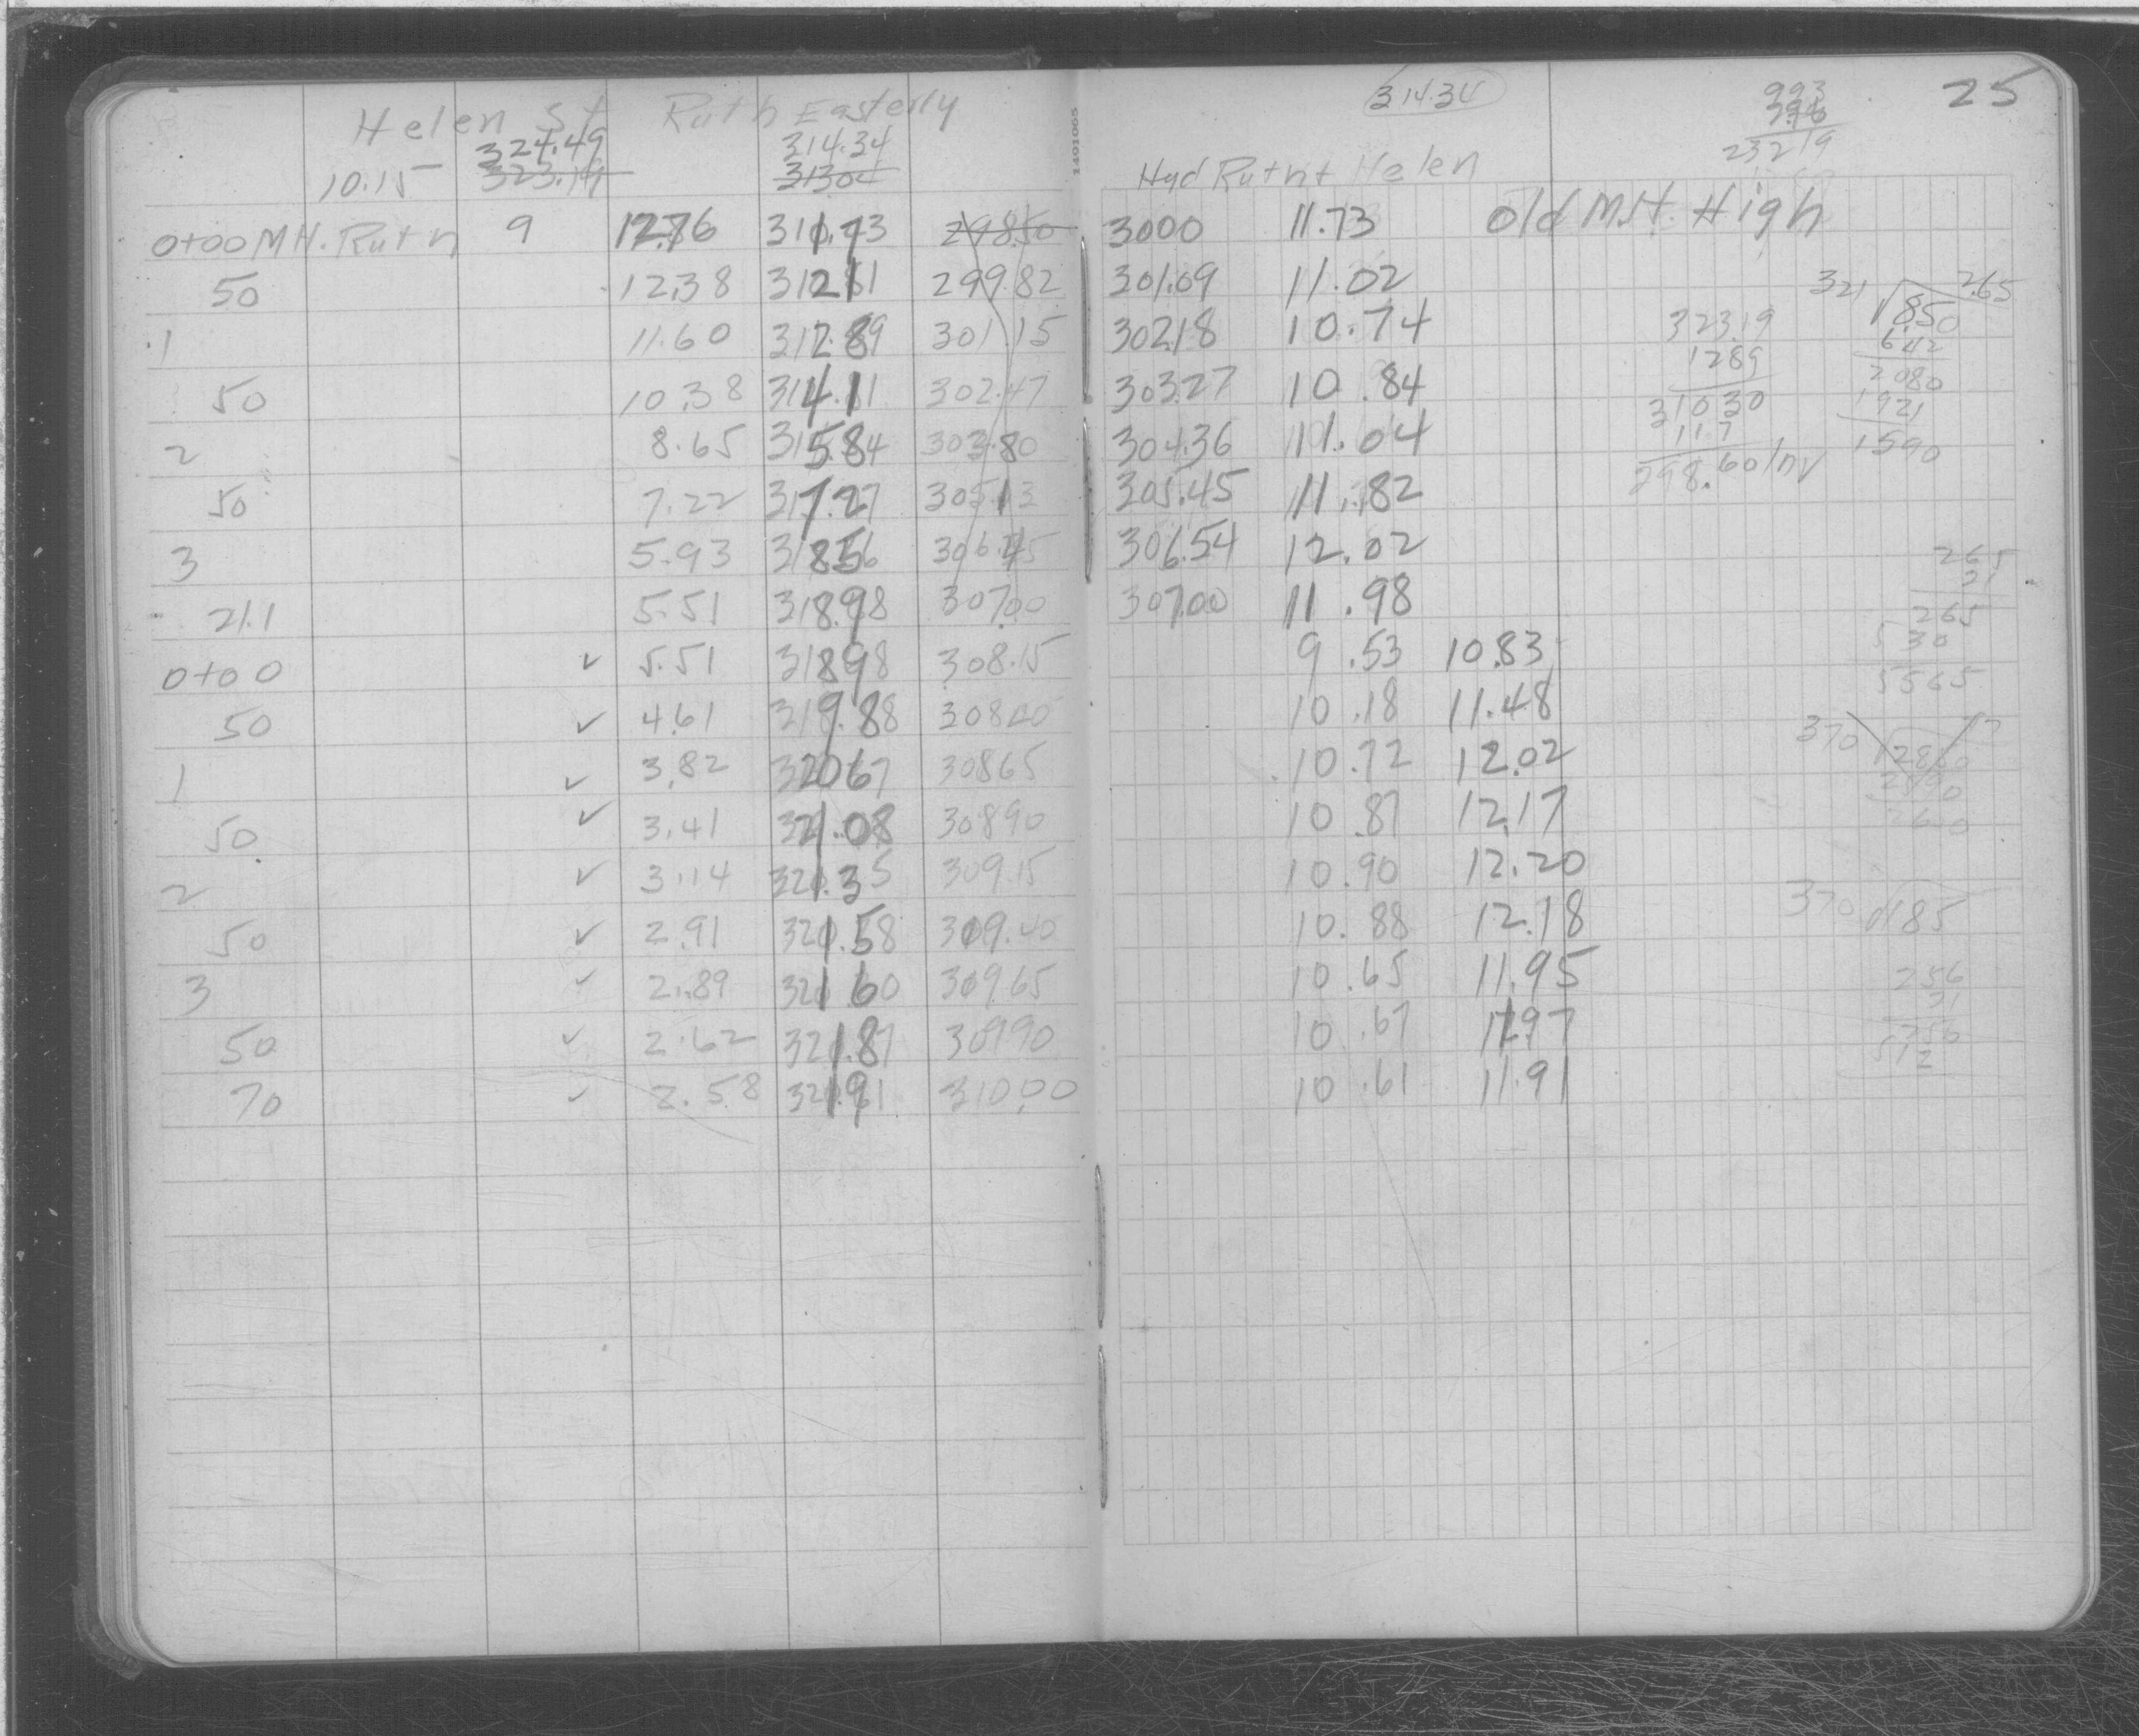 Helen St Ruth Easterly
324.49 314.34
10.15 323.19 313.04
0+00 M.H. Ruth 9 12.76 311.73 298.50
50 12.38 312.11 299.82
1 11.60 312.89 301.15
50 10.38 314.11 302.47
2 8.65 315.84 303.80
50 7.22 317.27 305.13
3 5.93 318.56 306.45
21.1 5.51 318.98 307.00
0+00 ✓ 5.51 318.98 308.15
50 ✓ 4.61 319.88 308.40
1 ✓ 3.82 320.67 308.65
50 ✓ 3.41 321.08 308.90
2 ✓ 3.14 321.35 309.15
50 ✓ 2.91 321.58 309.40
3 ✓ 2.89 321.60 309.65
50 ✓ 2.62 321.87 309.90
70 ✓ 2.58 321.91 310.00
1401065
314.34
25
993
23219
Hyd Ruth + Helen
3000 11.73 Old M.H. High
301.09 11.02
302.18 10.74
303.27 10.84
304.36 11.04
305.45 11.82
306.54 12.02
307.00 11.98
9.53 10.83
10.18 11.48
10.72 12.02
10.87 12.17
10.90 12.20
10.88 12.18
10.65 11.95
10.67 11.97
10.61 11.91
321 8.50 2.65
642
2080
1921
1590
323.19
1289
310.30
11.7
298.60 Inv
265
21
265
530
5565
370
370 185
256
21
256
512